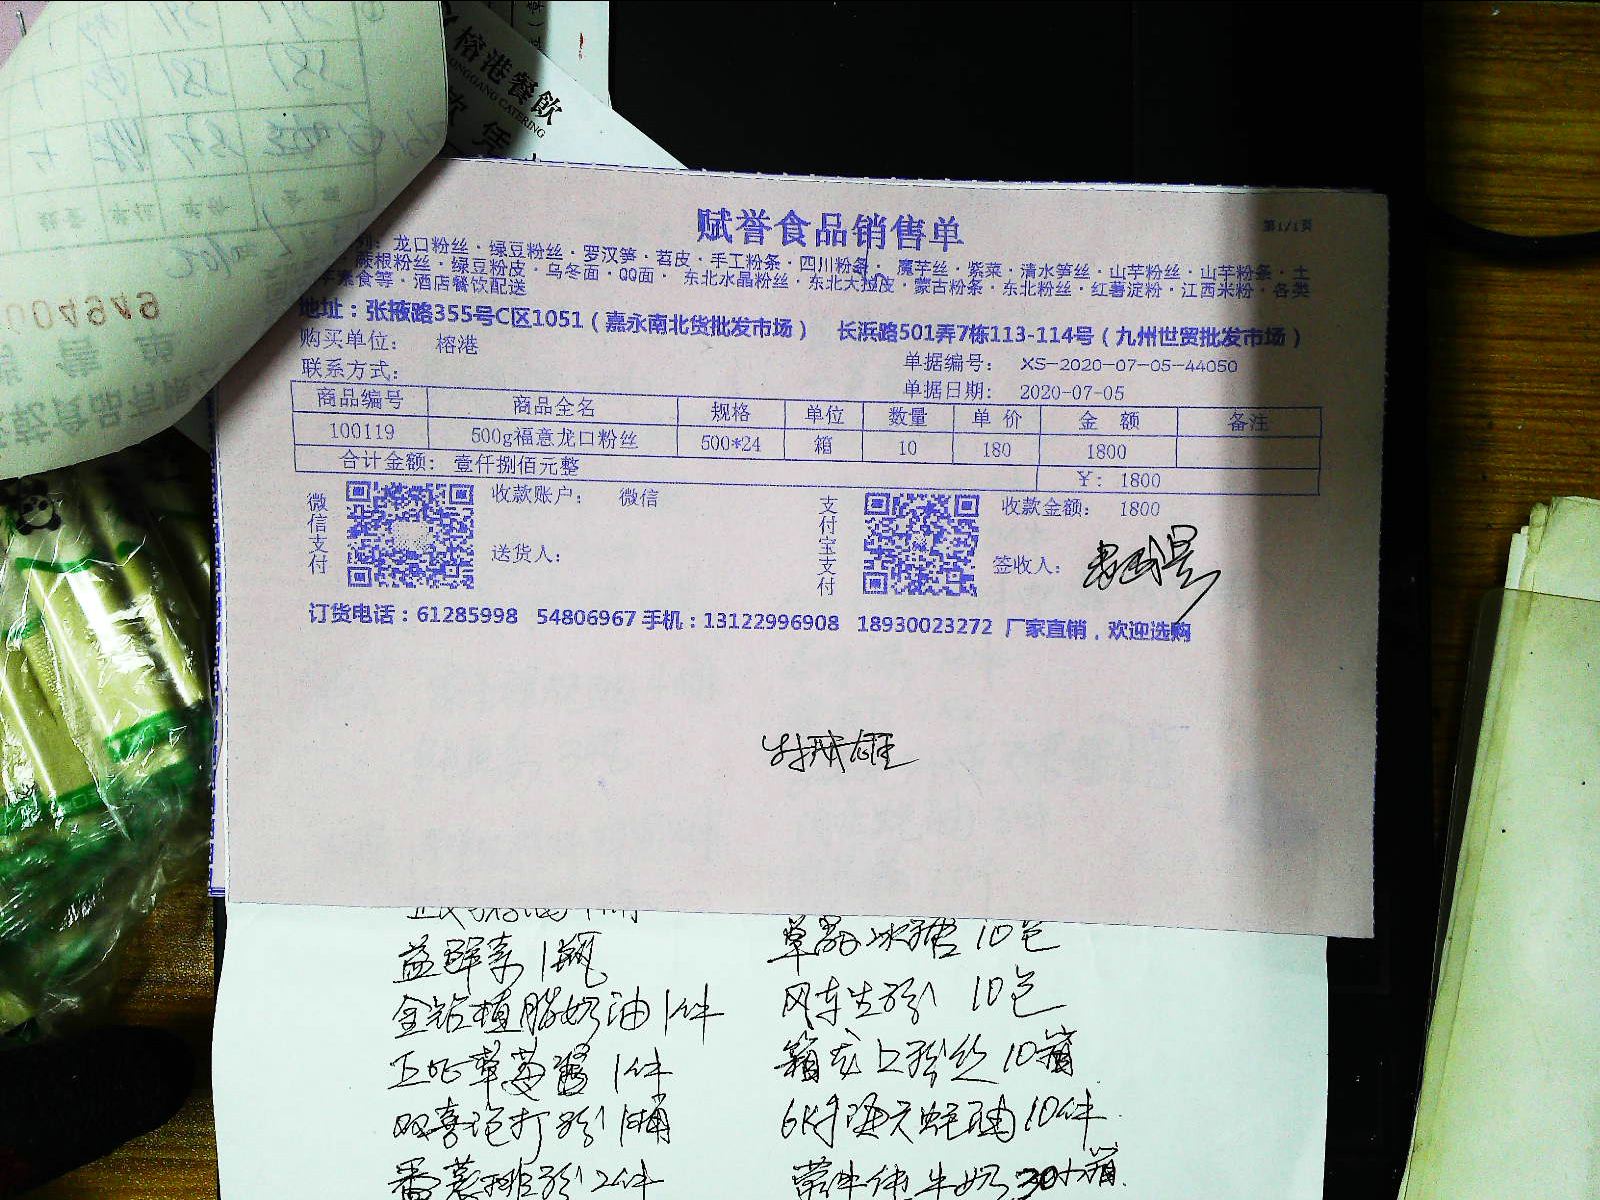 榕港餐飲
RONGGANG CATERING
赋誉食品销售单
第1/1页
龙口粉丝·绿豆粉丝·罗汉笋·苕皮·手工粉条·四川粉条·魔芋丝·紫菜·清水笋丝·山芋粉丝·山芋粉条·土
蕨根粉丝·绿豆粉皮·乌冬面·QQ面·东北水晶粉丝·东北大拉皮·蒙古粉条·东北粉丝·红薯淀粉·江西米粉·各类
素食等·酒店餐饮配送
地址：张掖路355号C区1051（嘉永南北货批发市场） 长浜路501弄7栋113-114号（九州世贸批发市场）
购买单位： 榕港 单据编号： XS-2020-07-05-44050
联系方式： 单据日期： 2020-07-05
商品编号 商品全名 规格 单位 数量 单价 金额 备注
100119 500g福意龙口粉丝 500*24 箱 10 180 1800
合计金额： 壹仟捌佰元整 ￥：1800
微信支付 收款账户： 微信 支付宝支付 收款金额： 1800
送货人： 签收人：
订货电话：61285998 54806967 手机：13122996908 18930023272 厂家直销，欢迎选购
益鲜素 1瓶 单晶冰糖 10包
金钻植脂奶油 1件 风车生粉 10包
草莓酱 1件 箱龙口粉丝 10箱
双喜泡打粉 1桶 10件
2件 牛奶 30小箱
004949